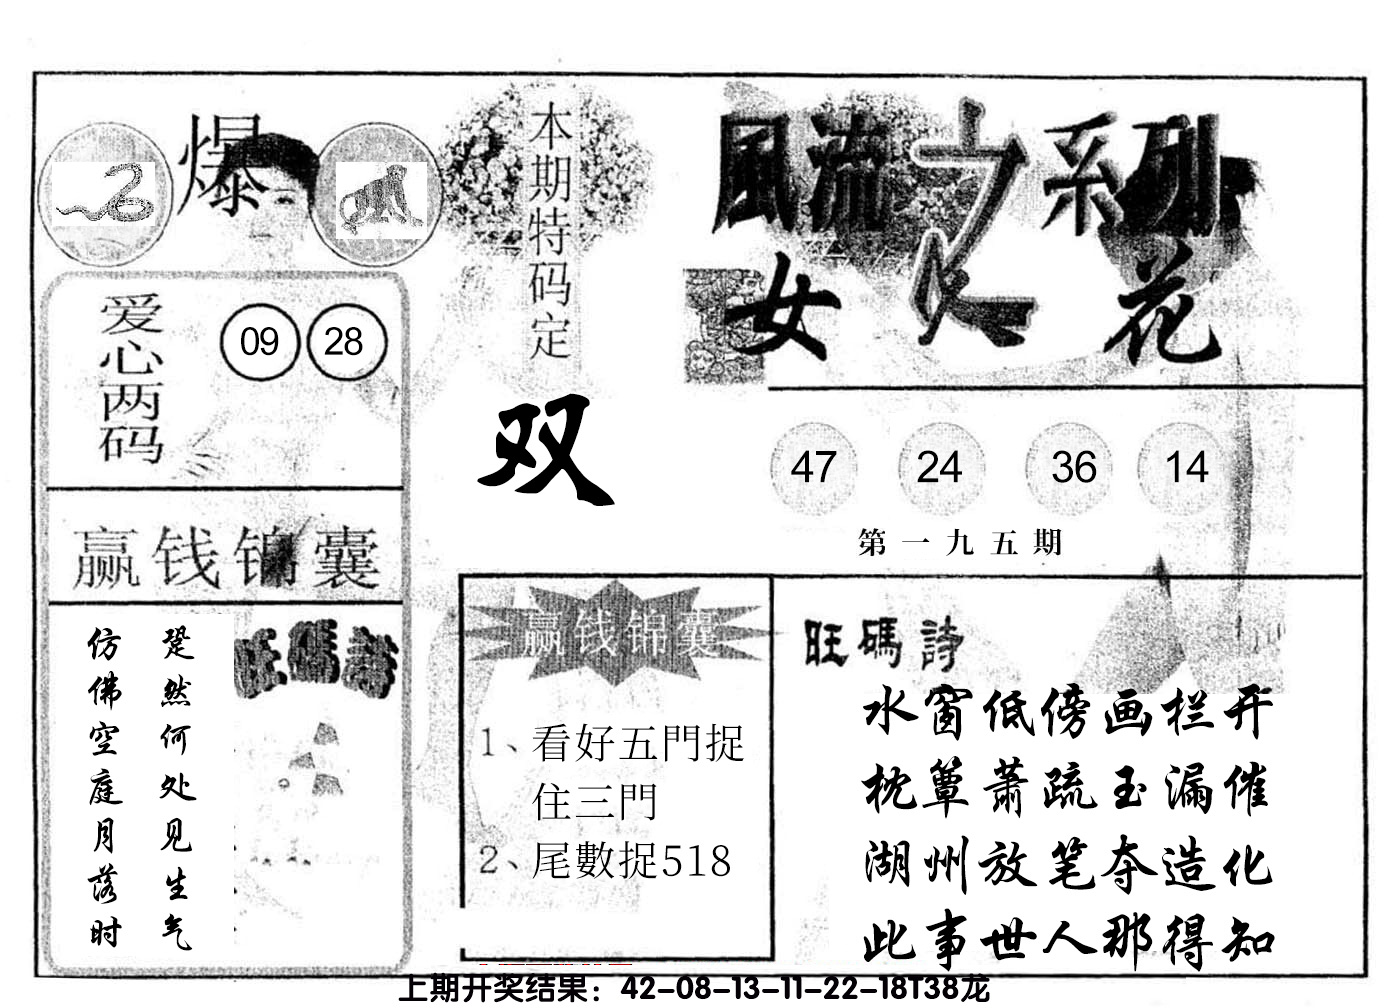 爆
本期特码定
双
風流之系列
女人花
爱心两码
09 28
47 24 36 14
第一九五期
赢钱锦囊
跫然何处见生气
仿佛空庭月落时
旺碼詩
赢钱锦囊
1、看好五門捉
住三門
2、尾數捉518
旺碼詩
水窗低傍画栏开
枕簟萧疏玉漏催
湖州放笔夺造化
此事世人那得知
上期开奖结果：42-08-13-11-22-18T38龙